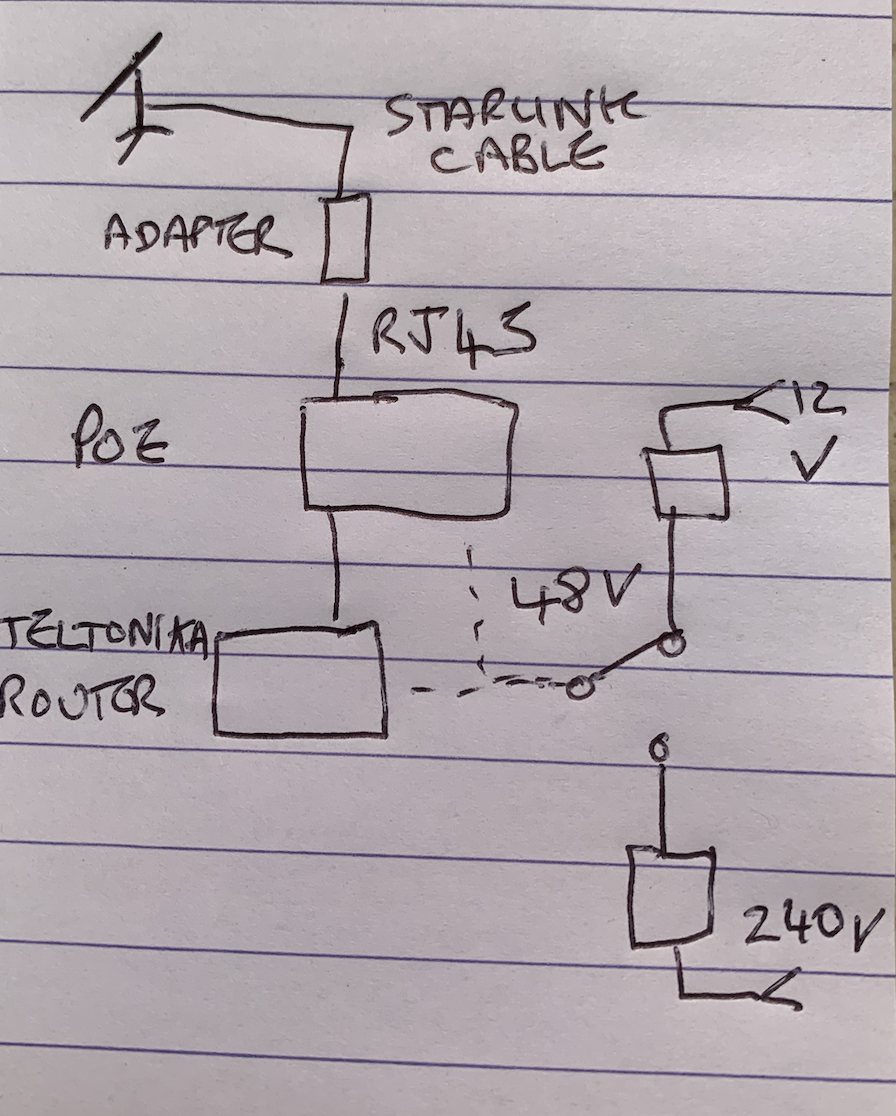 STARLINK
CABLE
ADAPTER
RJ45
POE
12
V
48V
TELTONIKA
ROUTER
240V